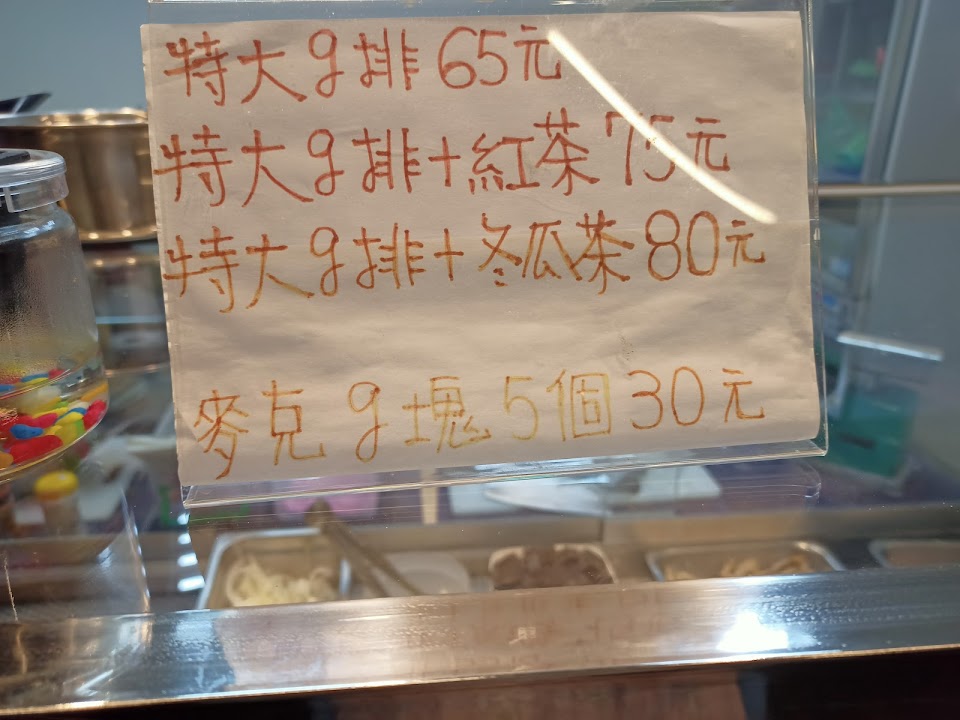 特大g排 65元
特大g排+紅茶 75元
特大g排+冬瓜茶 80元
麥克g塊 5個 30元